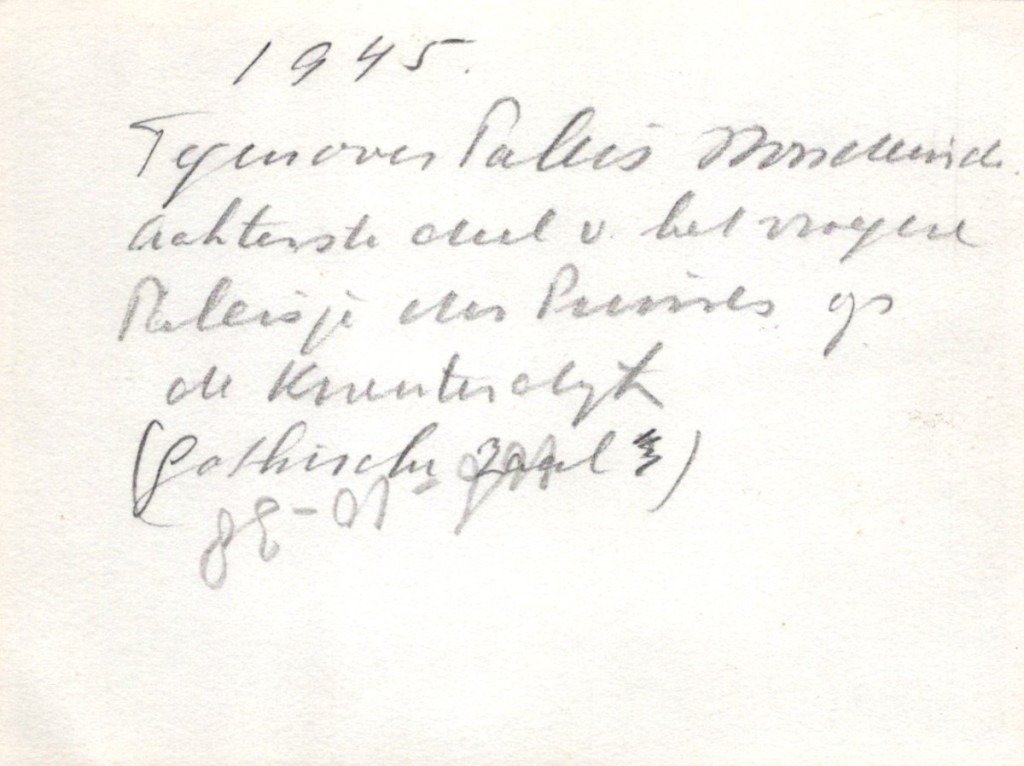 1945.
Tegenover Paleis Noordeinde.
Achterste deel v. het vroegere
Paleisje der Prinses op
de Kneuterdyk
(Gothische zaal)